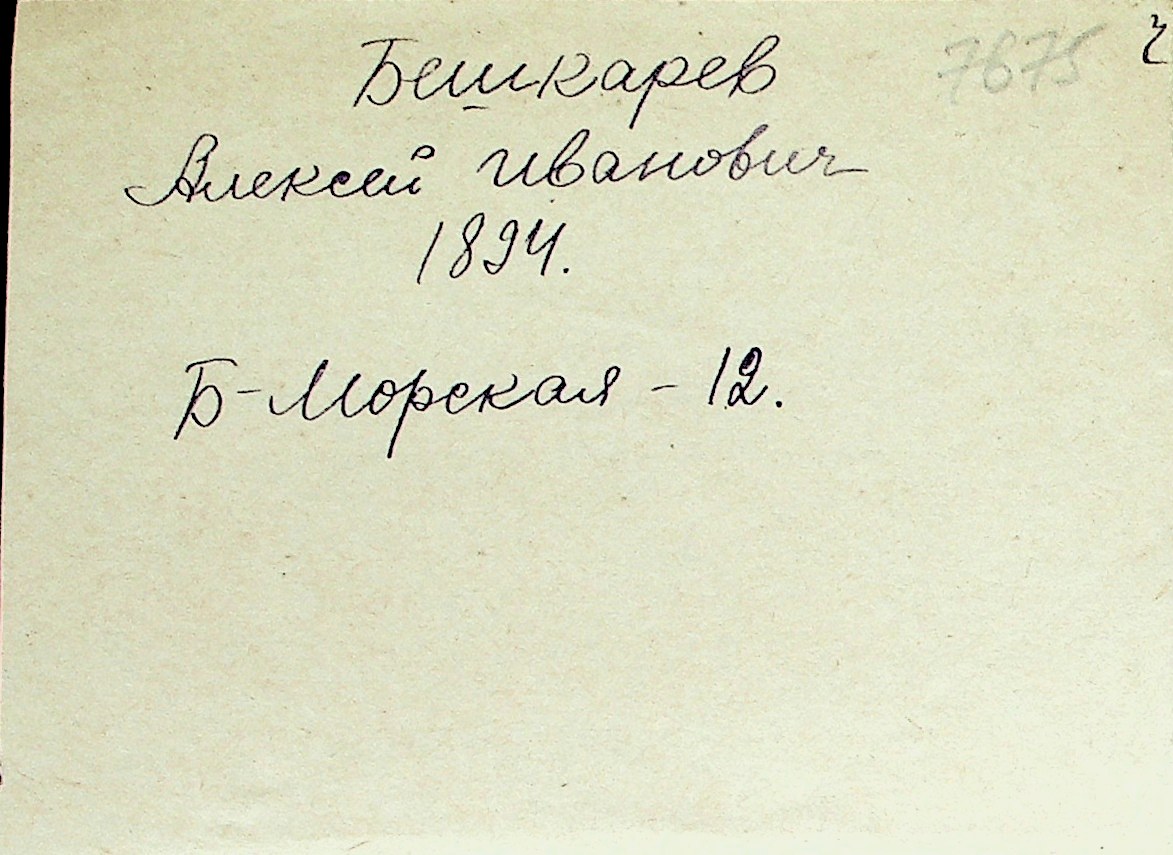 Бешкарев 7675
Алексей Иванович
1894.
Б-Морская - 12.